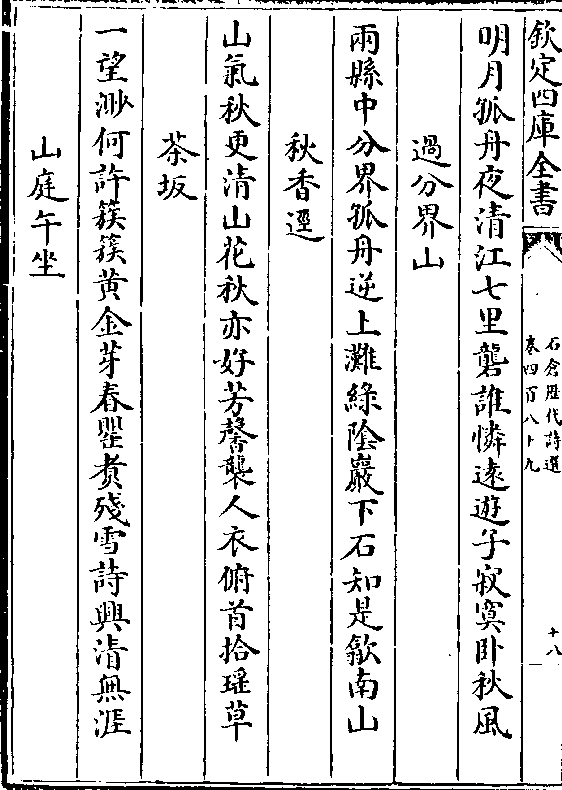 欽定四庫全書
石倉歷代詩選
卷四百八十九
十八
明月孤舟夜清江七里礱誰憐遠遊子寂寞卧秋風
過分界山
兩縣中分界孤舟逆上灘綠陰巖下石知是歙南山
秋香逕
山氣秋更清山花秋亦好芳馨襲人衣俯首拾瑶草
茶坂
一望渺何許簇簇黄金芽春罌煑殘雪詩興清無涯
山庭午坐